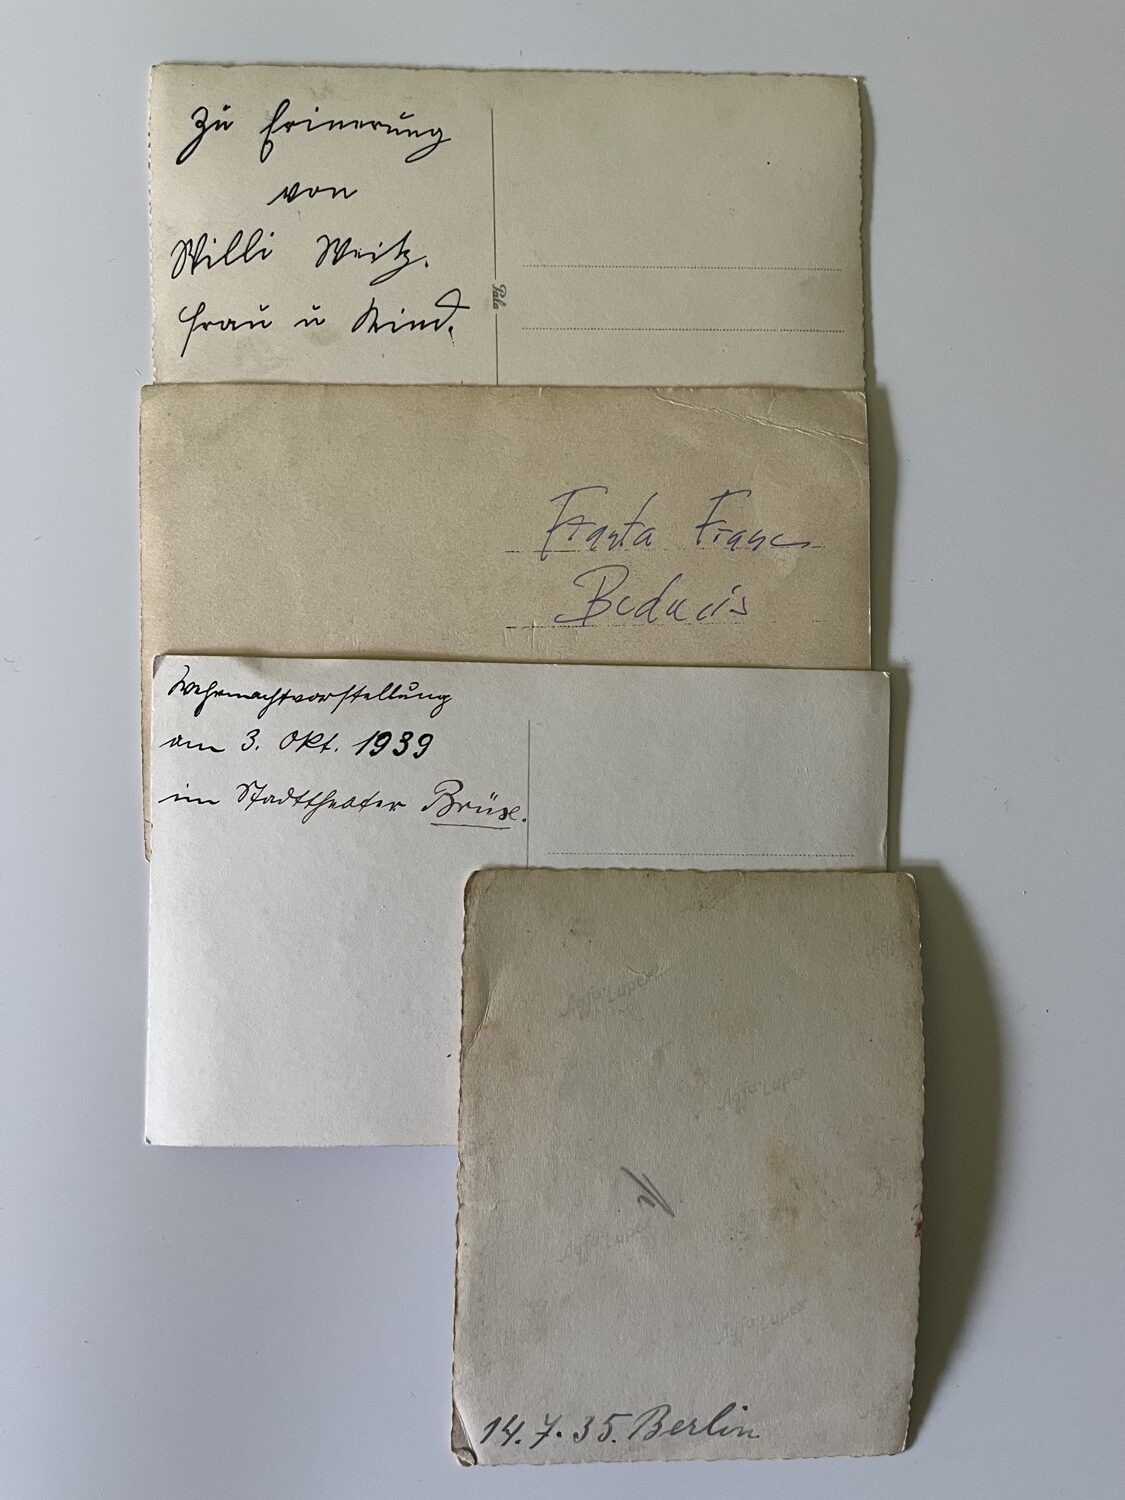 Zu Erinerung
von
Willi Weitz.
Frau u Kind.
Pala
Franta Franc
Wehrmachtvorstellung
am 3. Okt. 1939
im Stadttheater Brüx.
Agfa-Lupex
Agfa-Lupex
Agfa-Lupex
Agfa-Lupex
14.7.35. Berlin